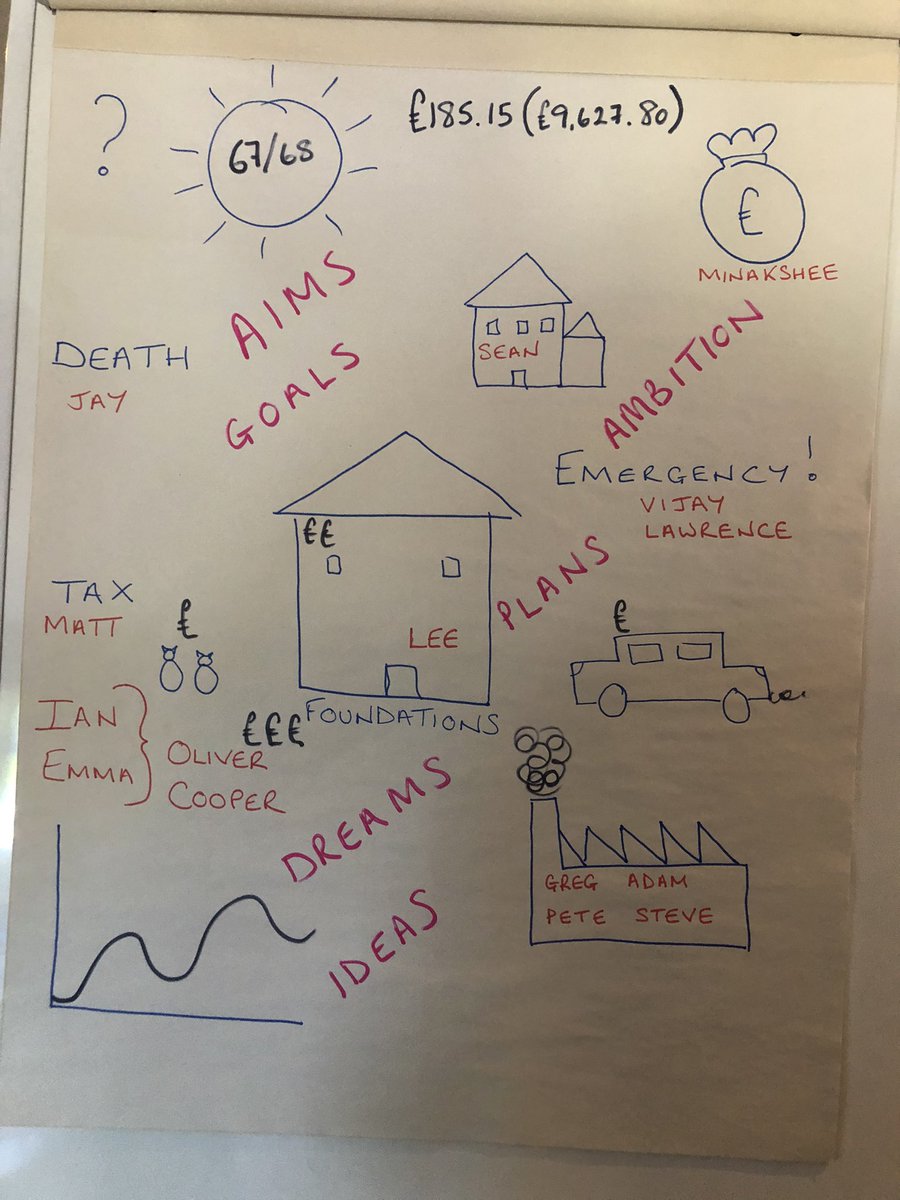 ?
67/68
£185.15 (£9,627.80)
£
MINAKSHEE
AIMS
GOALS
AMBITION
SEAN
DEATH
JAY
EMERGENCY!
VIJAY
LAWRENCE
££
LEE
PLANS
TAX
MATT
£
£
FOUNDATIONS
£££
IAN
EMMA
OLIVER
COOPER
DREAMS
IDEAS
GREG ADAM
PETE STEVE